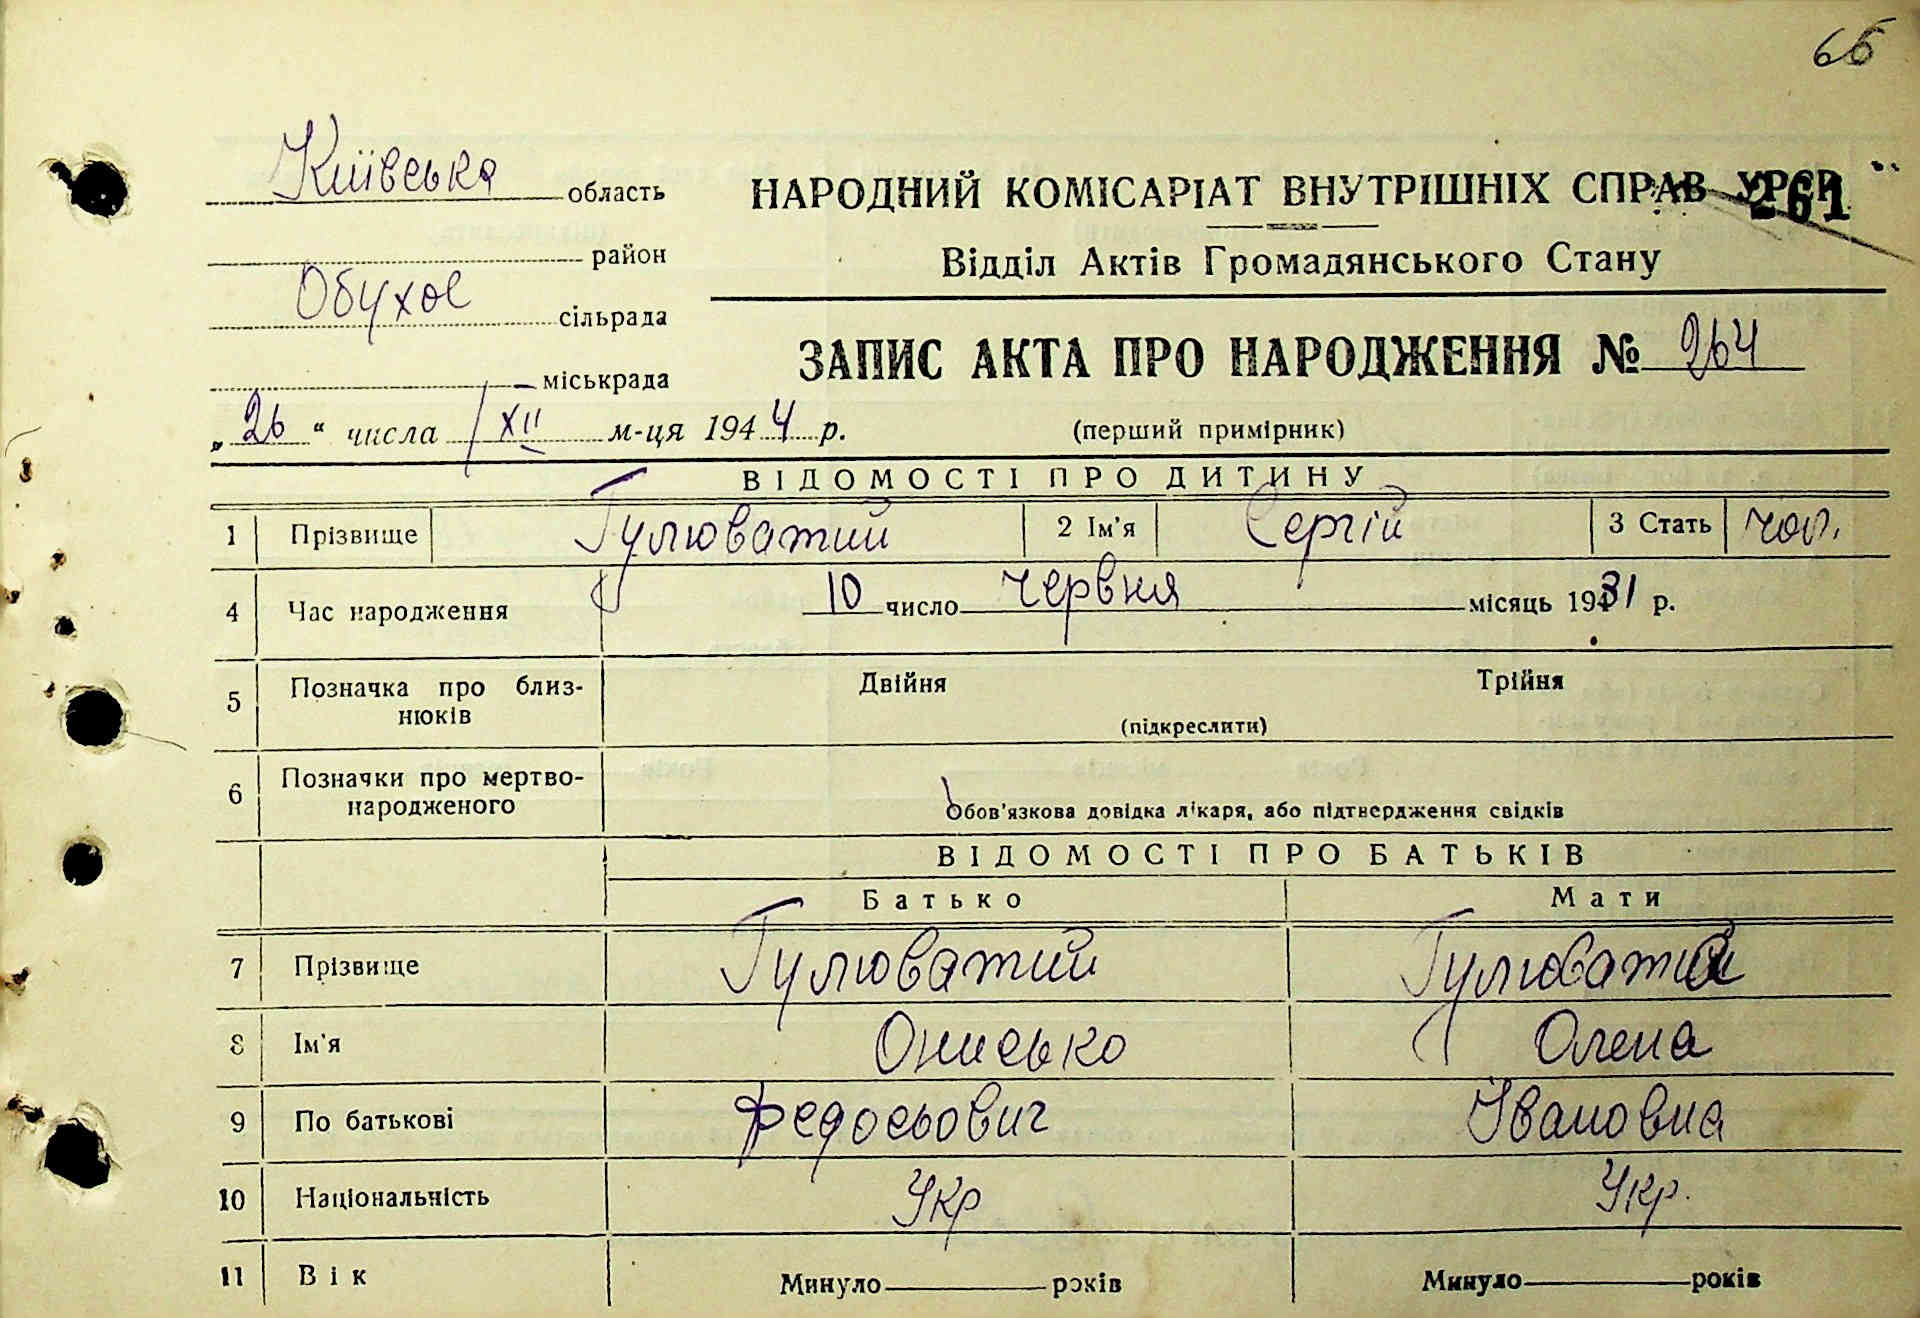 66
Київська область
НАРОДНИЙ КОМІСАРІАТ ВНУТРІШНІХ СПРАВ УРСР
261
район
Відділ Актів Громадянського Стану
Обухов сільрада
ЗАПИС АКТА ПРО НАРОДЖЕННЯ № 264
міськрада
„26“ числа XII м-ця 1944 р.
(перший примірник)
ВІДОМОСТІ ПРО ДИТИНУ
1 Прізвище Гулюватий 2 Ім'я Сергій 3 Стать чол.
4 Час народження 10 число червня місяць 1931 р.
5 Позначка про близ-
нюків
Двійня Трійня
(підкреслити)
6 Позначки про мертво-
народженого
Обов'язкова довідка лікаря, або підтвердження свідків
ВІДОМОСТІ ПРО БАТЬКІВ
Батько Мати
7 Прізвище Гулюватий Гулювата
8 Ім'я Онисько Олена
9 По батькові Федосьович Івановна
10 Національність Укр Укр.
11 Вік Минуло років Минуло років